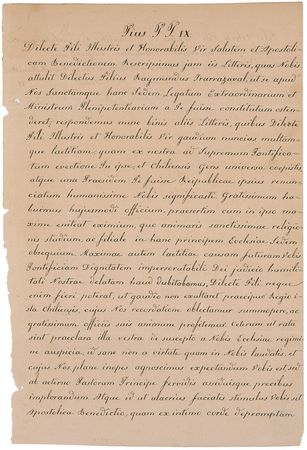 Pius P P IX.
Dilecte Fili Illustris et Honorabilis Vir salutem et Apostoli-
cam Benedictionem Rescripsimus jam iis Litteris, quas Nobis
attulit Dilectus Filius Raymundus Irarrazaval, ut se apud
Nos Sanctamque hanc Sedem Legatum Extraordinarium et
Ministrum Plenipotentiarium a Te fuisse constitutum osten-
deret; respondemus nunc binis aliis Litteris, quibus Dilecte
Fili Illustris et Honorabilis Vir gaudium nuncias multam-
que laetitiam quam ex nostra ad Supremum Pontifica-
tum evectione Tu ipse, et Chilensis Gens universa coepistis,
atque una Praesidem Te fuisse Reipublicae ipsius renun-
ciatum humanissime Nobis significasti. Gratissimum ha-
buimus hujusmodi officium, praesertim cum in ipso ma-
xime eluceat eximium, quo animaris sanctissimae religio-
nis studium, ac filiale in hanc principem Ecclesiae Sedem
obsequium. Maximae autem laetitiae causam futuram Vobis
Pontificiam Dignitatem imperscrutabili Dei judicio humili-
tati Nostrae delatam haud dubitabamus, Dilecte Fili, neque
enim fieri poterat, ut gaudio non exultaret praecipuo Regio i-
sta Chilensis, cujus Nos recordatione oblectamur summopere, ac
gratissimum officiis suis animum profitemur. Ceterum ut rata
sint praeclara illa vestra de suscepto a Nobis Ecclesiae regimi-
ne auspicia, id sane non a virtute quam in Nobis laudatis, et
cujus Nos plane inopes agnoscimus expectandum Vobis est sed
ab aeterno Pastorum Principe fervidis assiduisque precibus
implorandum Atque id ut alacrius faciatis stimulus Vobis sit
Apostolica Benedictio, quam ex intimo corde depromptam